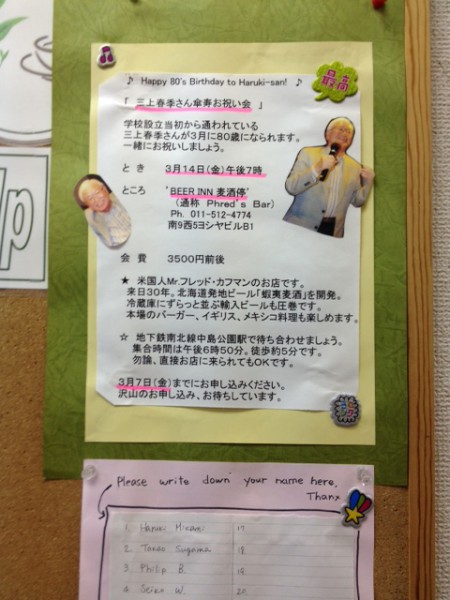 ♪ Happy 80's Birthday to Haruki-san! ♪
最高
「 三上春季さん傘寿お祝い会 」
学校設立当初から通われている
三上春季さんが3月に80歳になられます。
一緒にお祝いしましょう。
と き 3月14日(金)午後7時
ところ 'BEER INN 麦酒停'
(通称 Phred's Bar)
Ph. 011-512-4774
南9西5ヨシヤビルB1
会 費 3500円前後
★ 米国人Mr.フレッド・カフマンのお店です。
来日30年。北海道発地ビール「蝦夷麦酒」を開発。
冷蔵庫にずらっと並ぶ輸入ビールも圧巻です。
本場のバーガー、イギリス、メキシコ料理も楽しめます。
☆ 地下鉄南北線中島公園駅で待ち合わせましょう。
集合時間は午後6時50分。徒歩約5分です。
勿論、直接お店に来られてもOKです。
3月7日(金)までにお申し込みください。
沢山のお申し込み、お待ちしています。
Please write down your name here,
Thanx
1. Haruki Mikami 17
2. Tadao Sugama 18
3. Philip B. 19
4. Seiko W. 20
lp